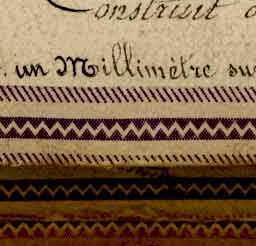 Construit
un Millimètre sur